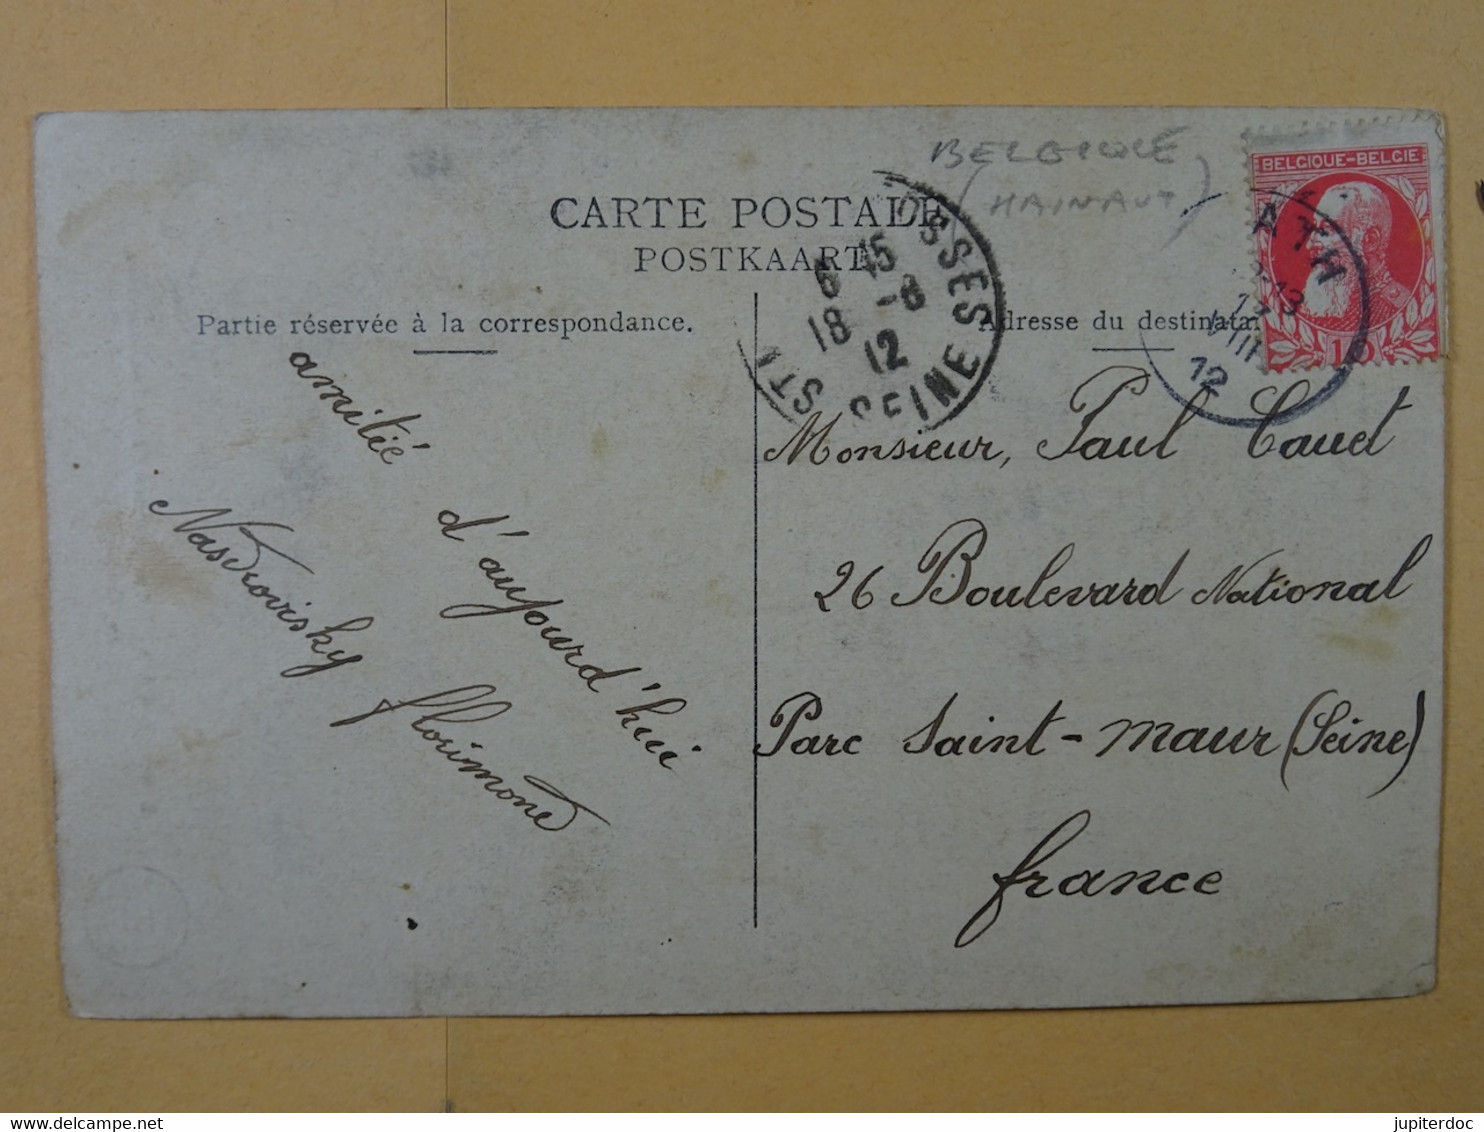 BELGIQUE
(HAINAUT)
BELGIQUE-BELGIE
10
ATH
VIII
12
CARTE POSTALE
POSTKAART
OSSES
6 15
18 -8
12
ST
SEINE
Partie réservée à la correspondance.
Adresse du destinatai
amitié
d'aujourd'hui
Nasdrovisky
florimond
Monsieur, Paul Cauet
26 Boulevard National
Parc Saint-Maur (Seine)
france
jupiterdoc